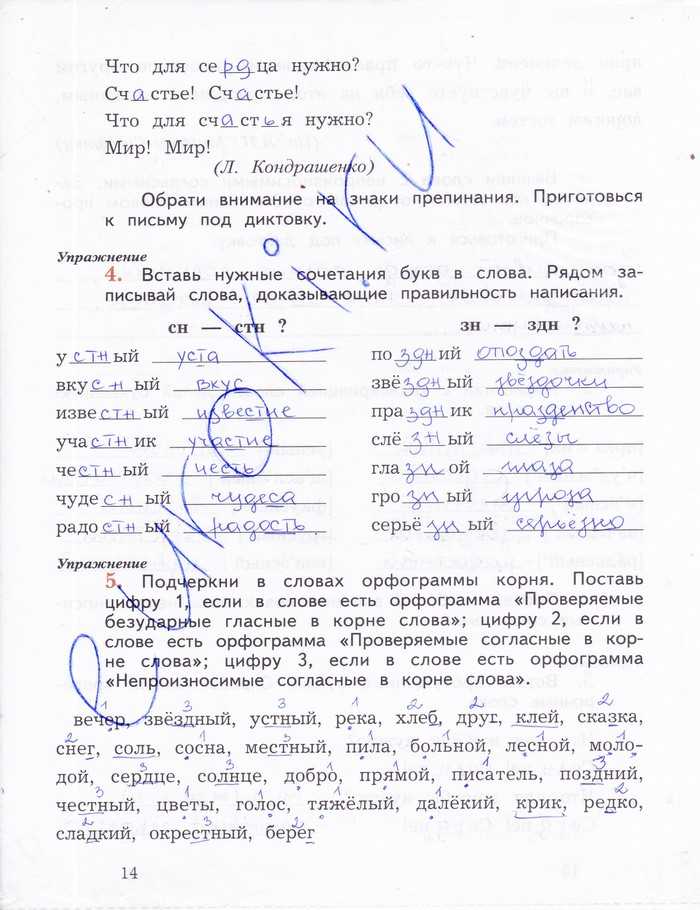 Что для сердца нужно?
Счастье! Счастье!
Что для счастья нужно?
Мир! Мир!
(Л. Кондрашенко)
Обрати внимание на знаки препинания. Приготовься
к письму под диктовку.
Упражнение
4. Вставь нужные сочетания букв в слова. Рядом за-
писывай слова, доказывающие правильность написания.
сн — стн ? зн — здн ?
устный уста поздний опоздать
вкусный вкус звёздный звёздочки
известный известие праздник празденство
участник участие слёзный слёзы
честный честь глазной глаза
чудесный чудеса грозный угроза
радостный радость серьёзный серьёзно
Упражнение
5. Подчеркни в словах орфограммы корня. Поставь
цифру 1, если в слове есть орфограмма «Проверяемые
безударные гласные в корне слова»; цифру 2, если в
слове есть орфограмма «Проверяемые согласные в кор-
не слова»; цифру 3, если в слове есть орфограмма
«Непроизносимые согласные в корне слова».
вечер, звёздный, устный, река, хлеб, друг, клей, сказка,
снег, соль, сосна, местный, пила, больной, лесной, моло-
дой, сердце, солнце, добро, прямой, писатель, поздний,
честный, цветы, голос, тяжёлый, далёкий, крик, редко,
сладкий, окрестный, берег
14